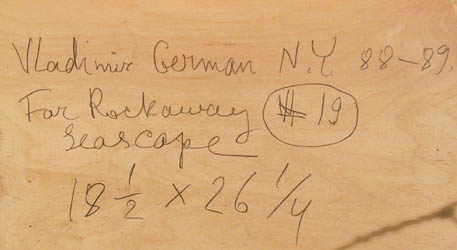 Vladimir German N.Y. 88-89.
Far Rockaway # 19
Seascape
18 1/2 x 26 1/4